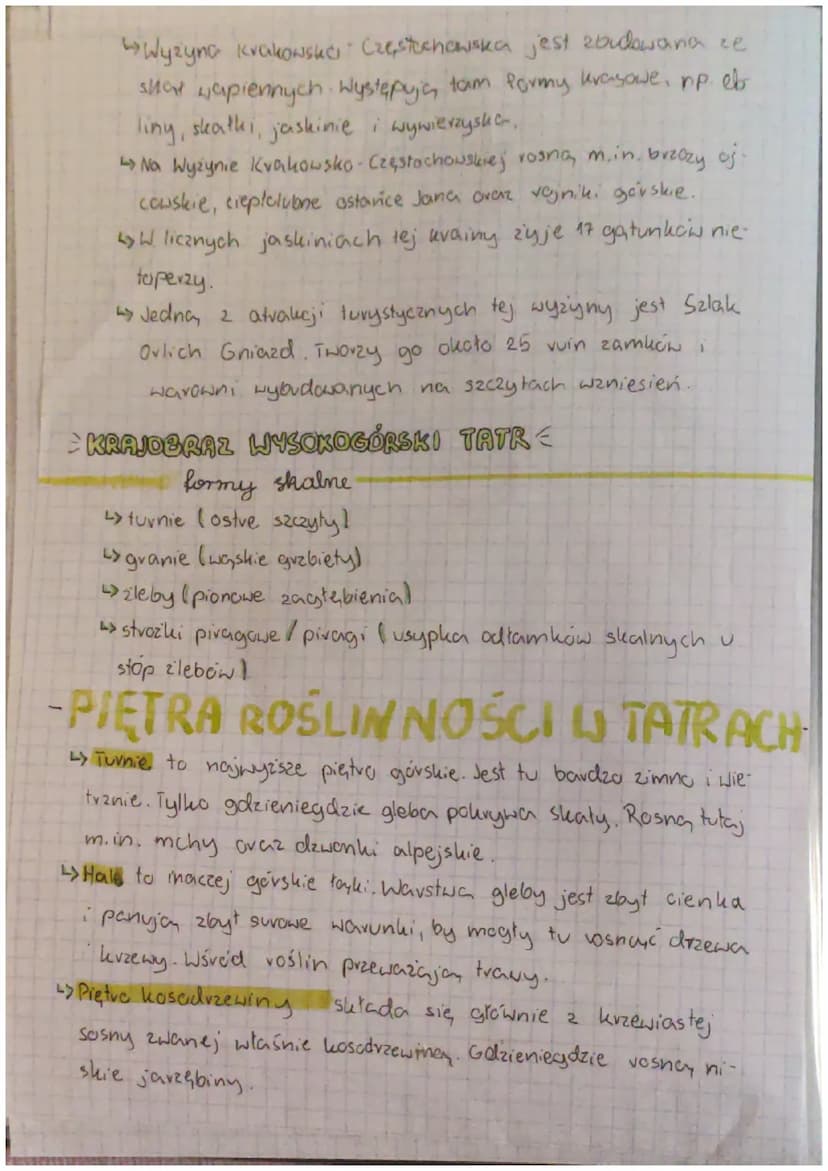 ↳ Wyżyna Krakowsko-Częstochowska jest zbudowana ze
skał wapiennych. Występują tam formy krasowe, np. eb
liny, skałki, jaskinie i wywierzyska.
↳ Na Wyżynie Krakowsko-Częstochowskiej rosną m.in. brzozy oj-
cowskie, ciepłolubne ostańce Jana oraz rojniki górskie.
↳ W licznych jaskiniach tej krainy żyje 17 gatunków nie-
toperzy.
↳ Jedną z atrakcji turystycznych tej wyżyny jest Szlak
Orlich Gniazd. Tworzy go około 25 ruin zamków i
warowni wybudowanych na szczytach wzniesień.
KRAJOBRAZ WYSOKOGÓRSKI TATR
formy skalne
↳ turnie (ostre szczyty)
↳ granie (wąskie grzbiety)
↳ żleby (pionowe zagłębienia)
↳ stożki piragowe / piragi (usypka odłamków skalnych u
stóp żlebów)
- PIĘTRA ROŚLINNOŚCI W TATRACH -
↳ Turnie to najwyższe piętro górskie. Jest tu bardzo zimno i wie-
trznie. Tylko gdzieniegdzie gleba pokrywa skały. Rosną tutaj
m.in. mchy oraz dzwonki alpejskie.
↳ Hale to inaczej górskie łąki. Warstwa gleby jest zbyt cienka
i panują zbyt surowe warunki, by mogły tu rosnąć drzewa
i krzewy. Wśród roślin przeważają trawy.
↳ Piętro kosodrzewiny składa się głównie z krzewiastej
sosny zwanej właśnie kosodrzewiną. Gdzieniegdzie rosną ni-
skie jarzębiny.